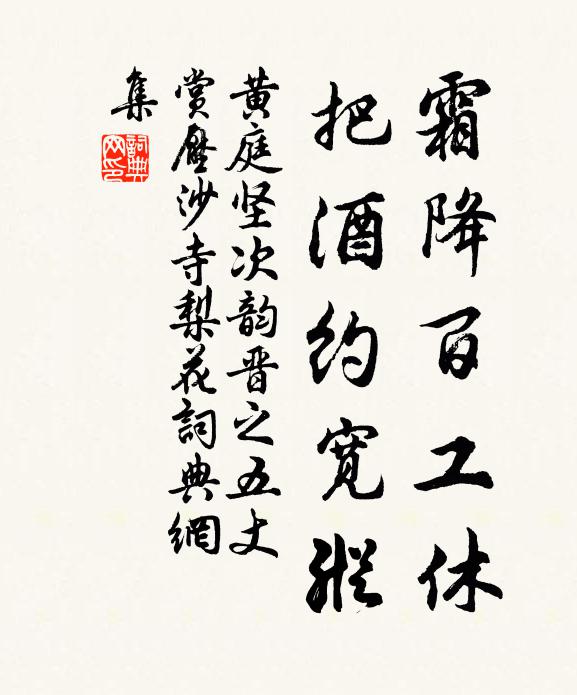 霜降百工休
把酒约宽縱
黄庭坚次韵晋之五丈
赏壓沙寺梨花詞典網
集
詞典
网印